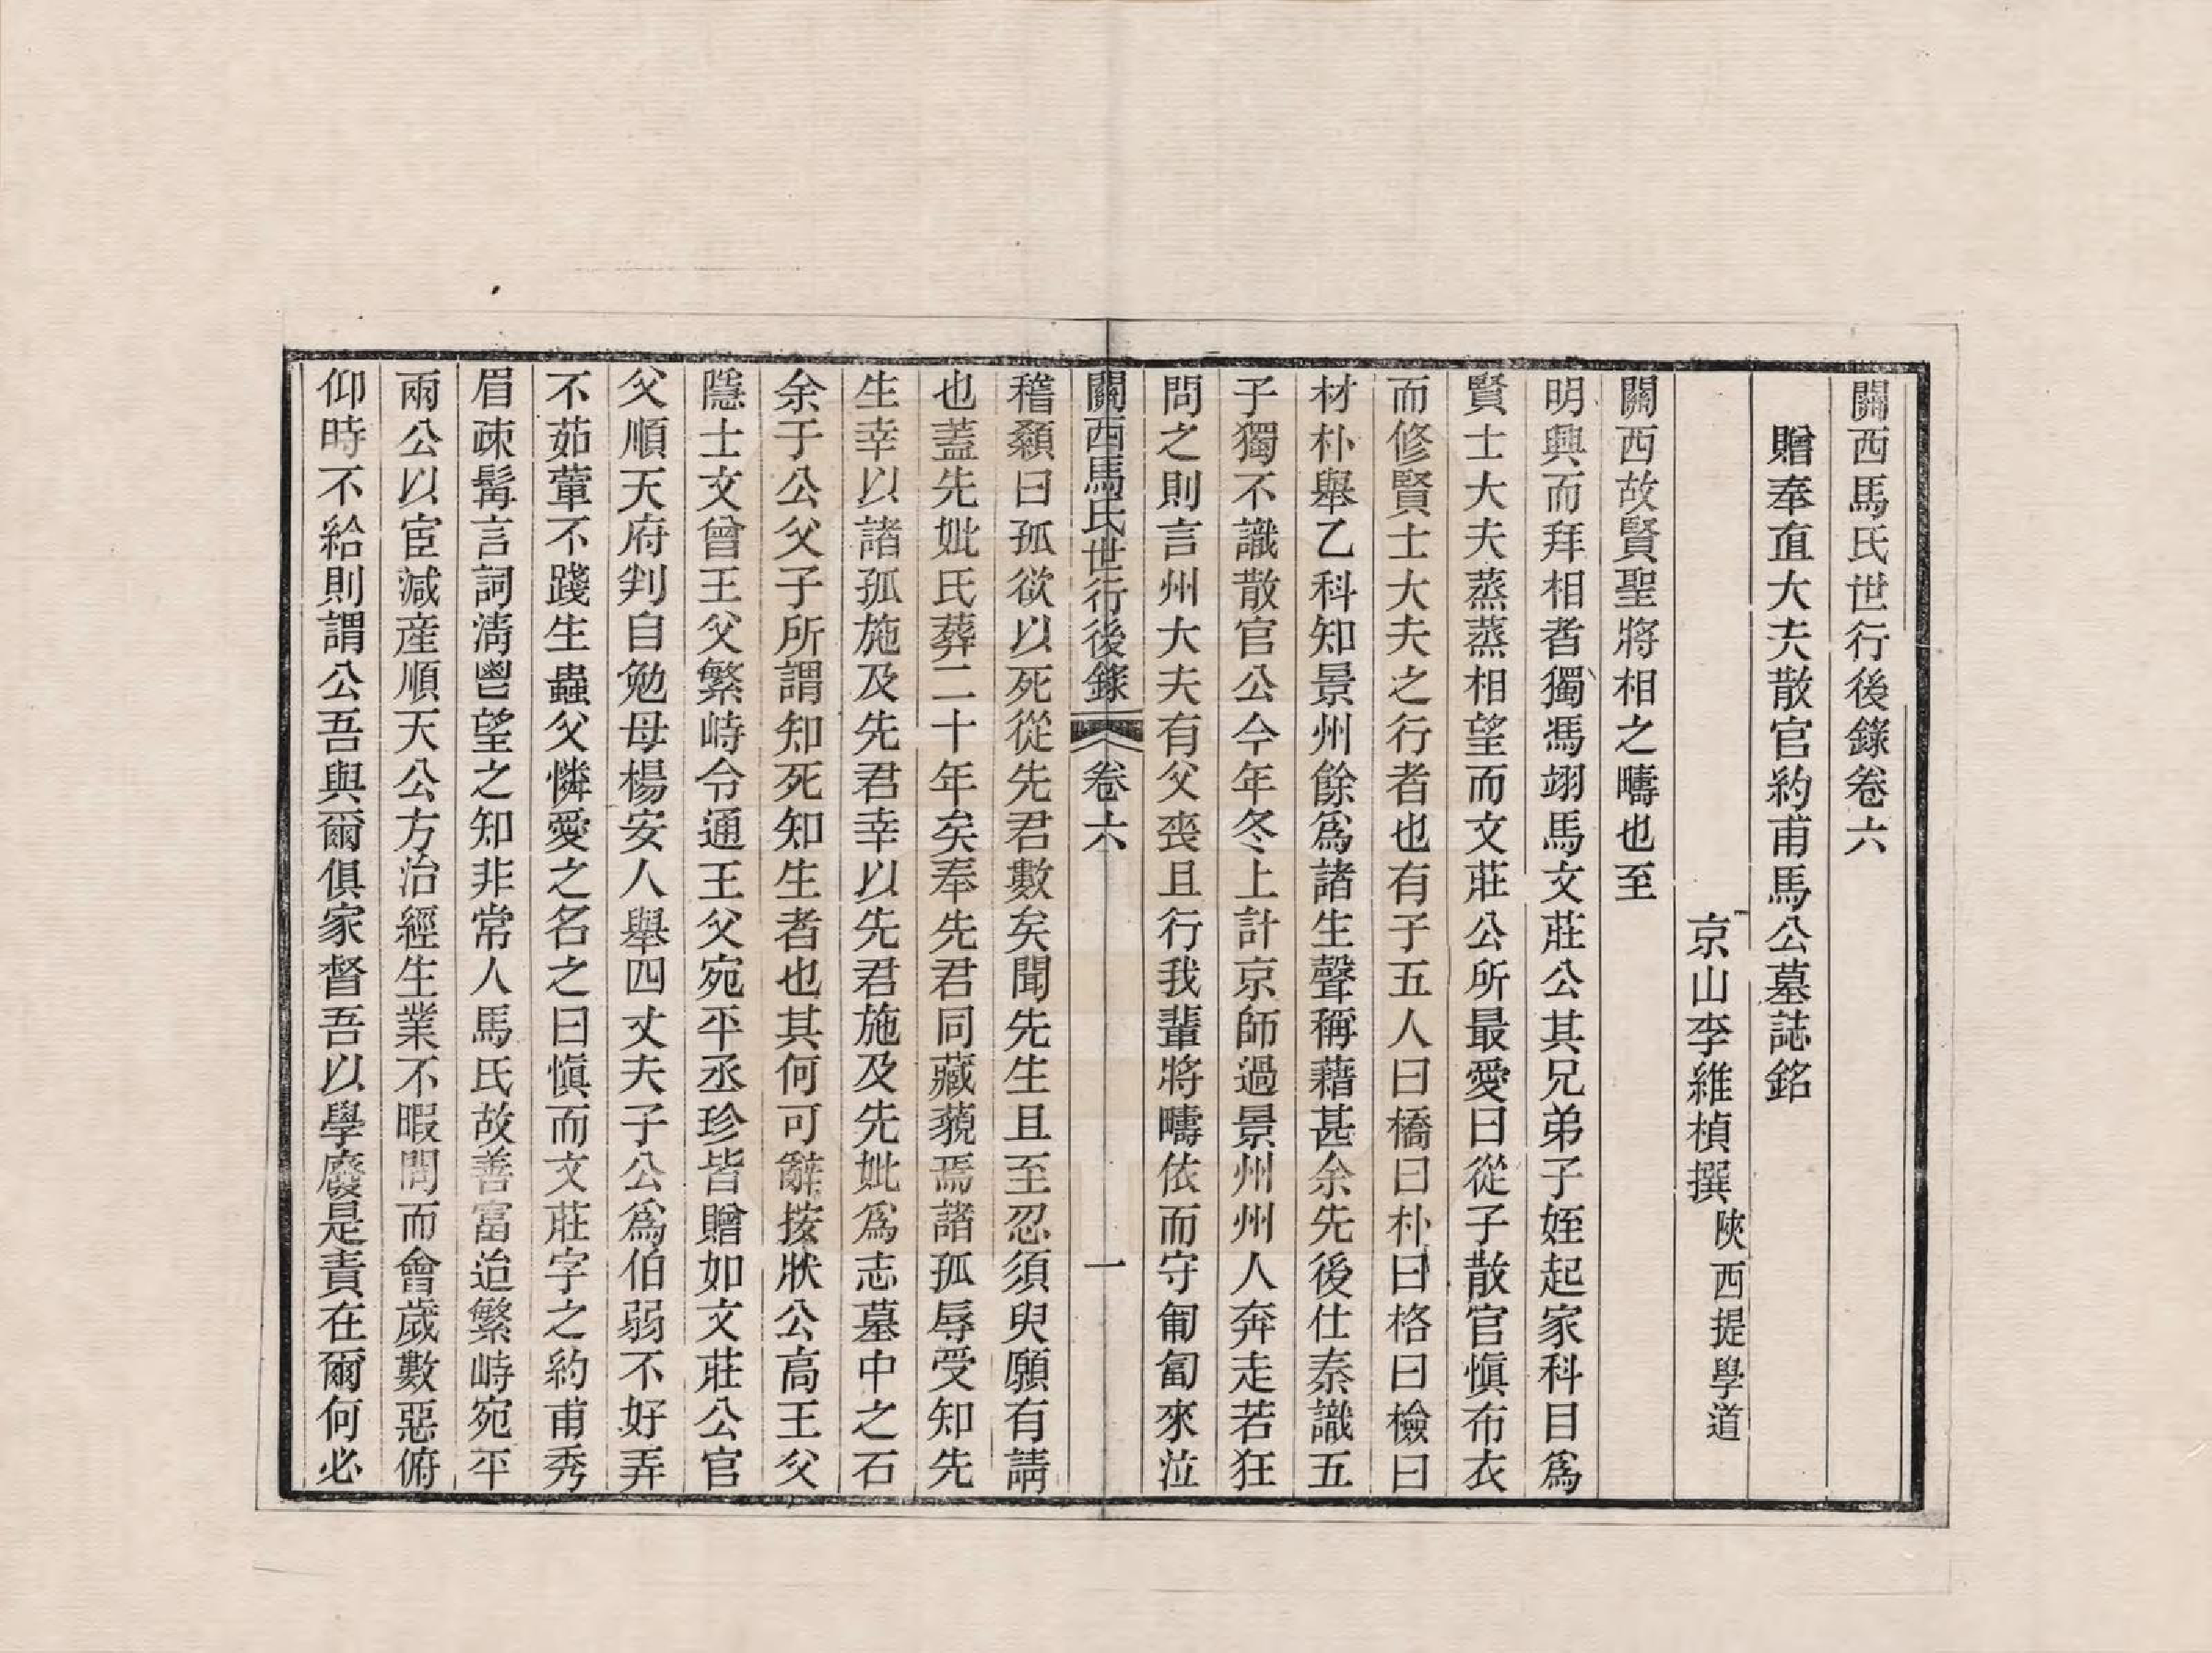 關西馬氏世行後錄卷六
贈奉直大夫散官約甫馬公墓誌銘
京山李維楨撰 陝西提學道
關西故賢聖將相之疇也至
明興而拜相者獨馮翊馬文莊公其兄弟子姪起家科目爲
賢士大夫蒸蒸相望而文莊公所最愛曰從子散官愼布衣
而修賢士大夫之行者也有子五人曰橋曰朴曰格曰檢曰
材朴舉乙科知景州餘爲諸生聲稱藉甚余先後仕秦識五
子獨不識散官公今年冬上計京師過景州州人奔走若狂
問之則言州大夫有父喪且行我輩將疇依而守匍匐來泣
關西馬氏世行後錄 卷六 一
稽顙曰孤欲以死從先君數矣聞先生且至忍須臾願有請
也蓋先妣氏葬二十年矣奉先君同藏藐焉諸孤辱受知先
生幸以諸孤施及先君幸以先君施及先妣爲志墓中之石
余于公父子所謂知死知生者也其何可辭按狀公高王父
隱士文曾王父繁峙令通王父宛平丞珍皆贈如文莊公官
父順天府判自勉母楊安人舉四丈夫子公爲伯弱不好弄
不茹葷不踐生蟲父憐愛之名之曰愼而文莊字之約甫秀
眉疎髯言詞淸鬯望之知非常人馬氏故善富迨繁峙宛平
兩公以宦減産順天公方治經生業不暇問而會歲數惡俯
仰時不給則謂公吾與爾俱家督吾以學廢是責在爾何必